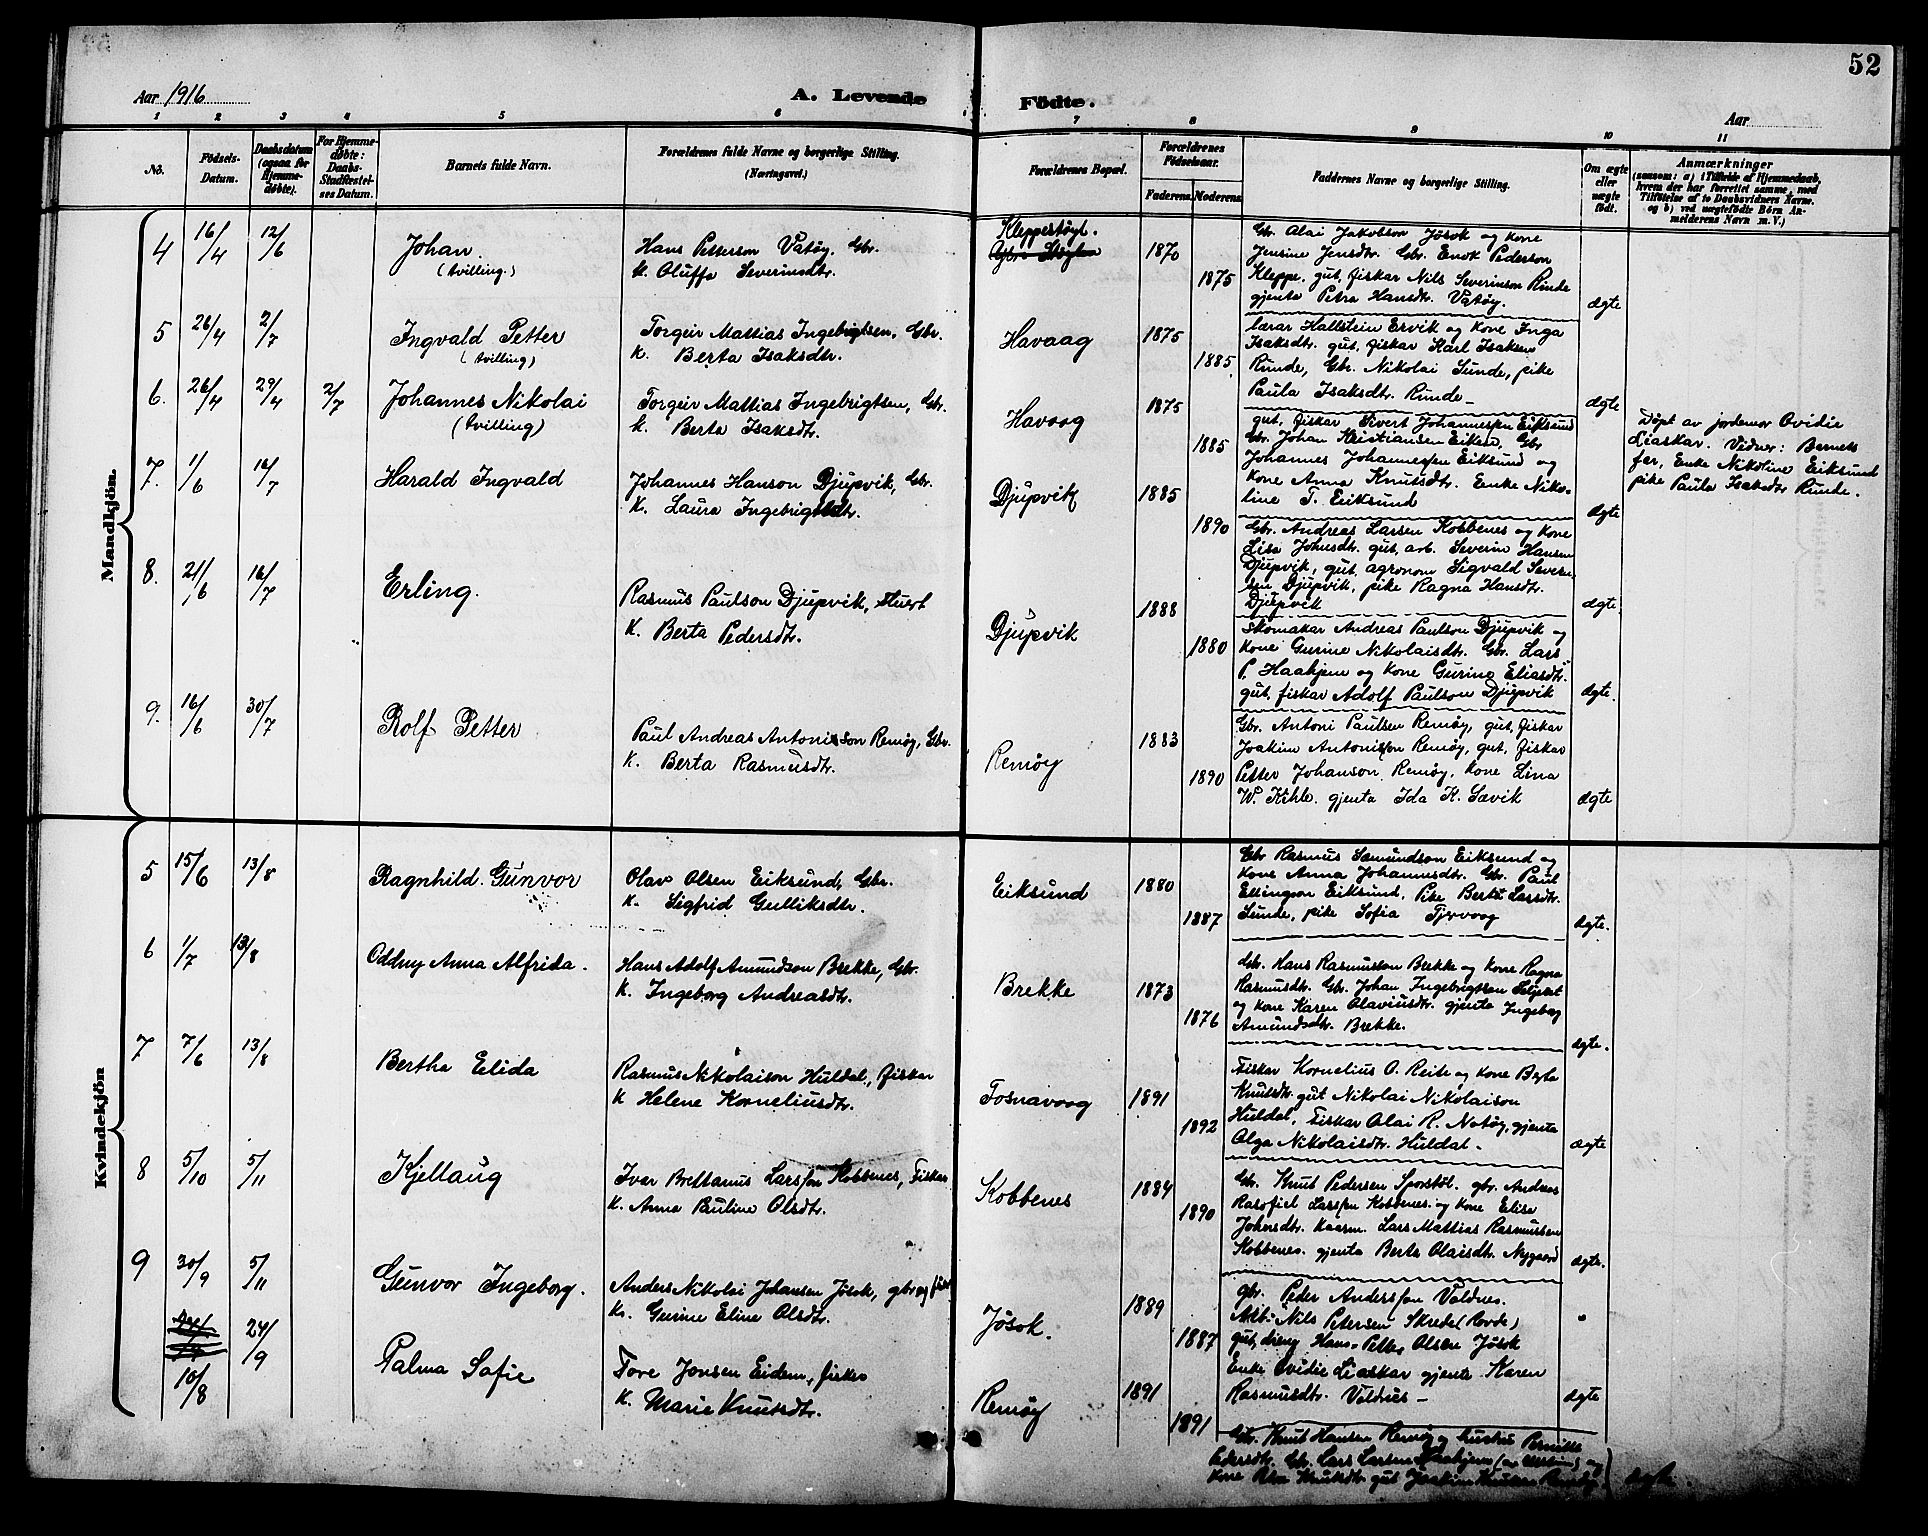 52
Aar 1916
A. Levende Födte.
Aar
1 2 3 4 5 6 7 8 9 10 11
No.
Födsels-Datum.
Daabsdatum (ogsaa for Hjemmedöbte).
For Hjemmedöbte: Daabs-Stadfæstelses Datum.
Barnets fulde Navn.
Forældrenes fulde Navne og borgerlige Stilling. (Næringsvei.)
Forældrenes Bopæl.
Forældrenes Födselsaar.
Faderens. Moderens.
Faddernes Navne og borgerlige Stilling.
Om ægte eller uægte födt.
Anmærkninger
(saasom: a) i Tilfælde af Hjemmedaab, hvem der har forrettet samme, med Tilföielse af to Daabsvidners Navne, og b) ved uægtefödte Börn Anmelderens Navn m. V.)
Mandkjön.
4 16/4 12/6
Johan
(tvilling.)
Hans Petterson Vatöy, Gbr.
K. Oluffa Severinsdtr.
Kleppestøyl.
1870
1875
Gbr. Alai Jakobson Jösok og kone
Jensine Jensdtr. Gbr. Enok Pederson
Kleppe. gut, fiskar Nils Severinson Runde
gjenta Petra Hansdtr. Vatöy.
ægte
5 26/4 2/7
Ingvald Petter
(tvilling)
Torgeir Mattias Ingebrigtsen, Gbr.
K. Berta Isaksdtr.
Havaag
1875
1885
lærar Hallstein Ervik og kone Inga
Isaksdtr. gut, fiskar Karl Isaksen
Runde, Gbr. Nikolai Sunde, pike
Paula Isaksdtr. Runde -
ægte
6. 26/4 29/4 2/7
Johannes Nikolai
(tvilling)
Torgeir Mattias Ingebrigtsen, Gbr.
K. Berta Isaksdtr.
Havaag
1875
1885
gut, fiskar Sivert Johannessen Eiksund
Gbr. Johan Kristiansen Eiken, Gbr
Johannes Johannessen Eiksund og
kone Anna Knutsdtr. Enke Niko-
line T. Eiksund
ægte
Döpt av jordemor Ovidie
Liaskar. Vidner: Barnets
far, Enke Nikoline Eiksund
pike Paula Isaksdtr Runde.
7. 1/6 16/7
Harald Ingvald
Johannes Hanson Djupvik, Gbr.
K. Laura Ingebrigtsdtr.
Djupvik
1885
1890
Gbr. Andreas Larsen Kobbenes og kone
Lisa Johnsdtr. gut, arb. Severin Hansen
Djupvik, gut, agronom Sigvald Severin-
sen Djupvik, pike Ragna Hansdtr.
Djupvik
ægte
8. 21/6 16/7
Erling.
Rasmus Paulson Djupvik, Stuert
K. Berta Pedersdtr.
Djupvik
1888
1880
Skomakar Andreas Paulson Djupvik og
kone Gurine Nikolaisdtr. Gbr. Lars
P. Haahjem og kone Gurine Eliasdtr.
gut, fiskar Adolf Paulson Djupvik
ægte.
9. 16/6 30/7
Rolf Petter
Paul Andreas Antonison Remöy, Gbr.
K. Berta Rasmusdtr.
Remöy
1883
1890
Gbr. Antoni Paulsen Remöy, gut, fiskar
Joakim Antonisson Remöy, gut, fiskar
Petter Johanson Remöy, kone Lina
W. Kihle. gjenta Ida K. Sævik
ægte
Kvindekjön
5 15/6 13/8
Ragnhild Gunvor
Olav Olsen Eiksund, Gbr.
K. Sigfrid Gulliksdtr.
Eiksund
1880
1887
Gbr Rasmus Samundson Eiksund og
kone Anna Johannesdtr. Gbr. Paul
Ellingson Eiksund, Pike Berta Larsdtr.
Sunde, pike Sofia Tjervaag
ægte.
6 1/7 13/8
Oddny Anna Alfrida.
Hans Adolf Amundson Brekke, Gbr.
K. Ingeborg Andreasdtr.
Brekke
1873
1876
Gbr. Hans Rasmusson Brekke og kone Ragna
Rasmusdtr. Gbr. Johan Ingebrigtson
og kone Karen Olaviusdtr. gjenta Ingeborg
Amundsdtr. Brekke.
ægte.
7 7/6 13/8
Bertha Elida
Rasmus Nikolaison Huldal, fiskar
K Helene Korneliusdtr.
Fosnavaag
1891
1892
Fiskar Kornelius O. Reite og kone Berta
Knutsdtr. gut Nikolai Nikolaison
Huldal, Fiskar Alai R. Notöy, gjenta
Olga Nikolaisdtr. Huldal -
ægte
8 5/10 5/11
Kjellaug
Ivar Brettanus Larssen Kobbenes, Fiskar
K. Anna Pauline Olsdtr.
Kobbenes
1884
1890
Gbr. Knut Pedersen Sporstöl. gbr. Andreas
Larssen Kobbenes og kone Elisa
Johnsdtr. Lars Mattias Rasmussen
Kobbenes. gjenta Berte Olaisdtr. Nygaard
ægte.
9 30/9 5/11
Gunvor Ingeborg.
Anders Nikolai Johansen Jösok, gbr og
K. Gurine Eline Olsdtr.
Jösok.
1889
1887
gbr. Peder Anderssen Voldnes.
Arb. Nils Petersen Skrede (Rovde)
gut, dreng Hans Petter Olsen Jösok
Enke Ovidie Liaskar gjenta Karen
Rasmusdtr. Voldnes -
10/8 24/9
Palma Sofie
Tore Jonsen Eidem, fisker
K. Marie Knutsdtr.
Remöy
1891
1891
ægte
Gbr. Knut Hansen Remöy og hustru Pernille
Pedersdtr. Gbr. Lars Larsen Haahjem
kone Knutsdtr. gut Joakim Knutsen Remöy.
ægte.